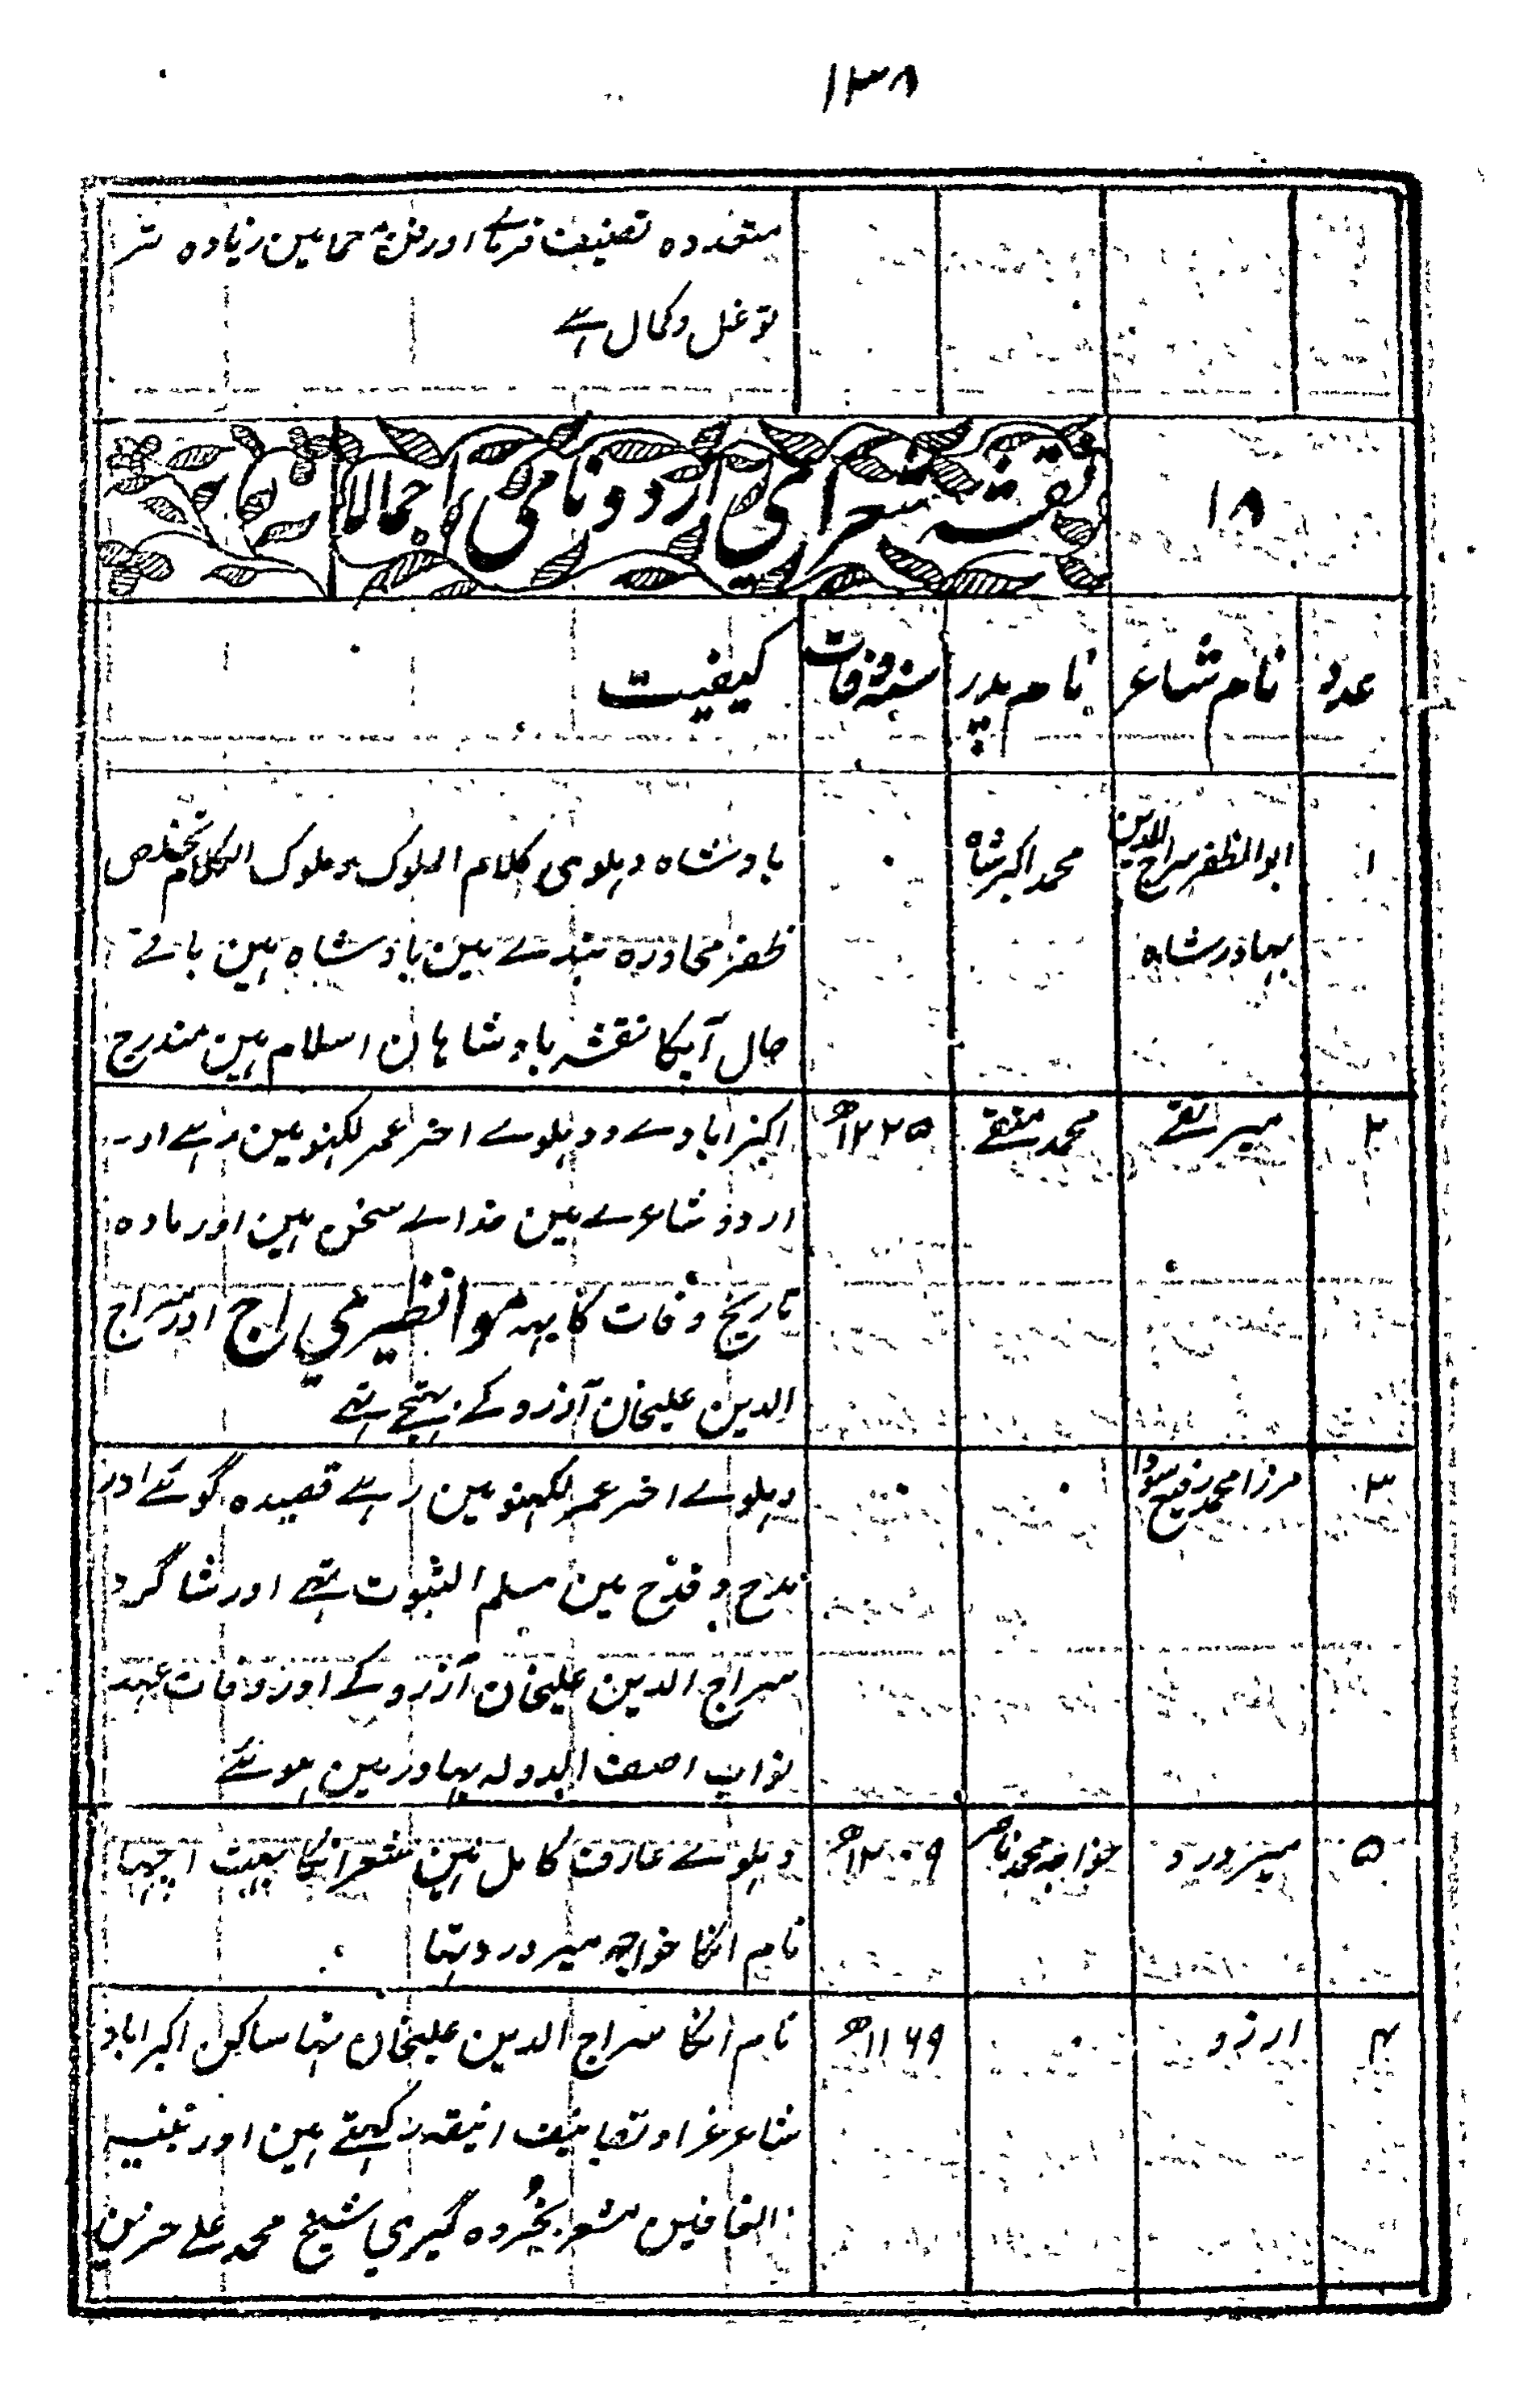 ۱۳۸
متعددہ تصنیف فرمائے اور فن حما مین زیادہ تر
توغل و کمال ہے
۱۸ نقشہ شعرامی اردو نامی اجمالا
عدد نام شاعر نام پدر سنہ وفات کیفیت
۱ ابو المظفر سراج الدین محمد اکبر شاہ ۰ بادشاہ دہلوی کلام الملوک و ملوک الکلام تخلص
بہادر شاہ ظفر محاورہ بندے مین بادشاہ ہین باقے
حال آپکا نقشہ بادشاہان اسلام مین مندرج
۲ میر تقے محمد متقے ۱۲۲۵ھ اکبر ابادے و دہلوے اخر عمر لکہنو مین رہے اور
اردو شاعرے مین خداے سخن ہین اور مادہ
تاریخ وفات کا یہہ موا نظیری اج اور سراج
الدین علیخان آرزو کے بہتیجے تہے
۳ مرزا محمد رفیع سودا ۰ ۰ دہلوے اخر عمر لکہنو مین رہے قصیدہ گوئے اور
مدح و قدح مین مسلم الثبوت تہے اور شاگرد
سراج الدین علیخان آرزو کے اور وفات عہد
نواب اصف الدولہ بہادر مین ہوئے
۵ میر درد خواجہ محمد ناصر ۱۲۰۹ھ دہلوے عارف کامل ہین شعر انکا بہت اچہا
نام انکا خواجہ میر درد تہا
۴ ارزو ۰ ۱۱۶۹ھ نام انکا سراج الدین علیخان تہا ساکن اکبر اباد
شاعر غرا و تصانیف انیقہ رکہتے ہین اور تنبیہ
الغافلین مشعر بخُردہ گیری شیخ محمد علے حزین